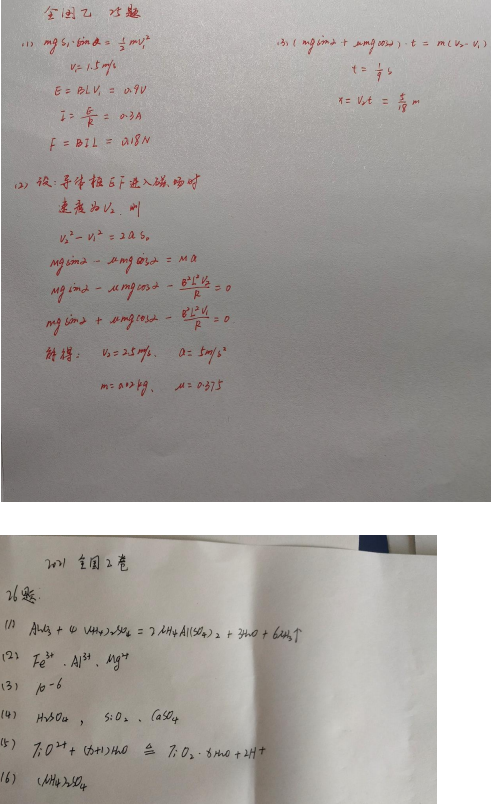 全国乙 25题
(1) mgs₁·sinα = ½mv₁²
v₁=1.5m/s
E = BLV₁ = 0.9V
I = E/R = 0.3A
F = BIL = 0.18N
(2) 设:导体框EF进入磁场时
速度为V₂,则
v₂² - v₁² = 2as₀
Mgsinα - μmgcosα = Ma
Mgsinα - μmgcosα - B²L²V₂/R = 0
mgsinα + μmgcosα - B²L²V₁/R = 0
解得: V₂=2.5m/s, a=5m/s²
m=0.02kg, μ=0.375
(3) (mgsinα + μmgcosα)·t = m(V₂-V₁)
t = 1/9 s
x = V₂t = 5/18 m
2021 全国2卷
26题.
(1) Al₂O₃ + 4(NH₄)₂SO₄ = 2NH₄Al(SO₄)₂ + 3H₂O + 6NH₃↑
(2) Fe³⁺、Al³⁺、Mg²⁺
(3) 10⁻⁶
(4) H₂SO₄, SiO₂、CaSO₄
(5) TiO²⁺ + (x+1)H₂O ≜ TiO₂·xH₂O + 2H⁺
(6) (NH₄)₂SO₄